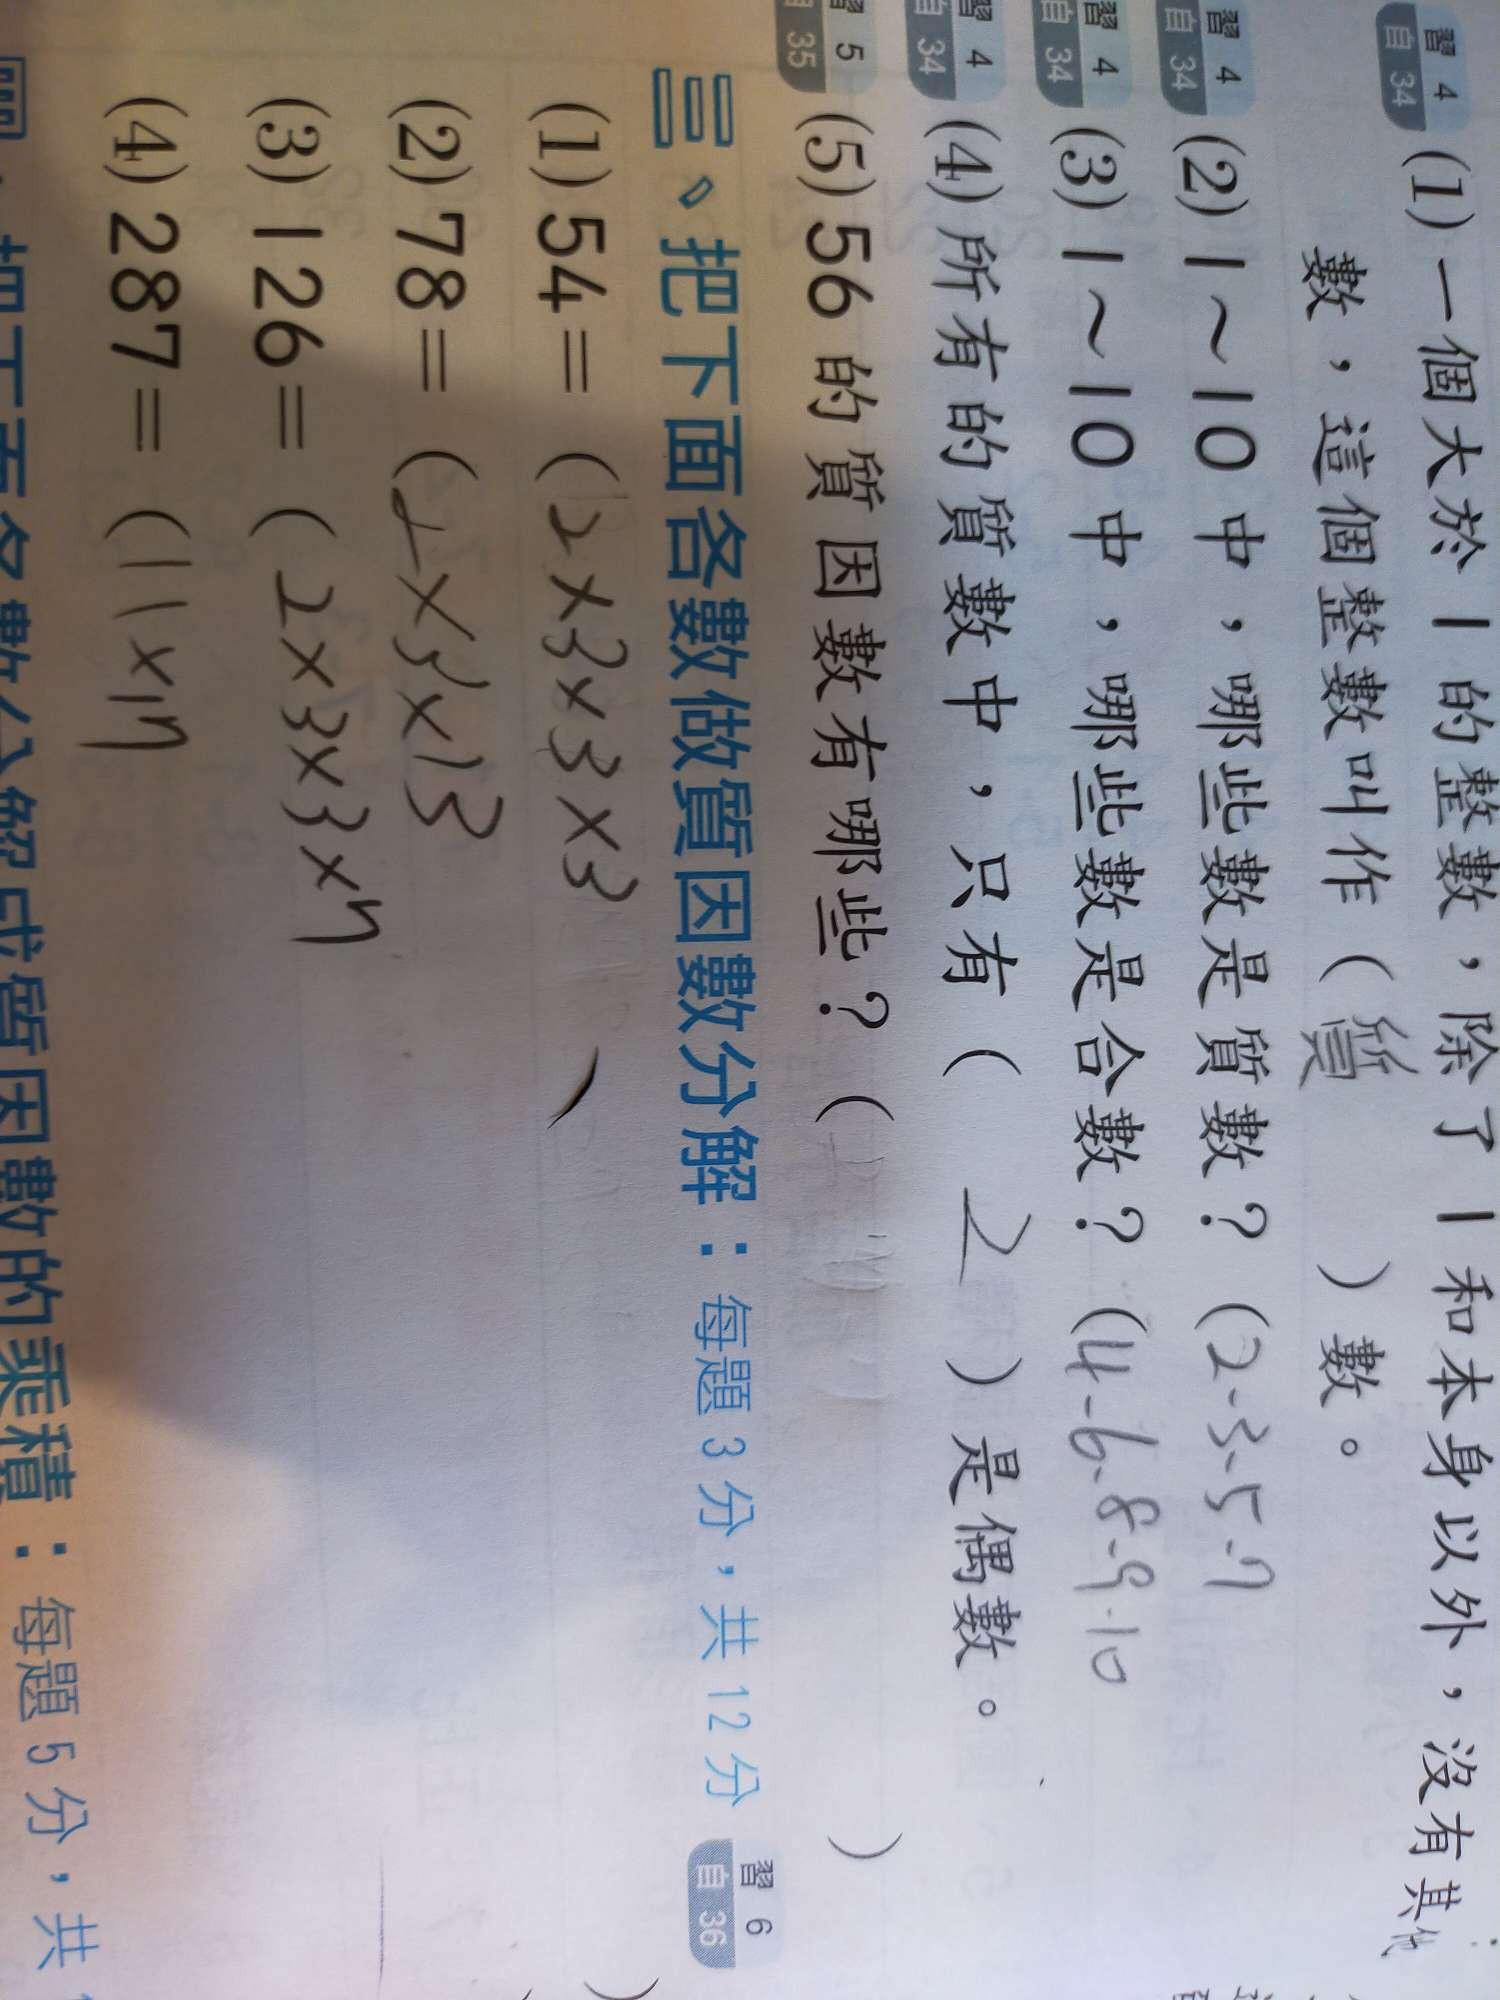 習 4
自 34
(1) 一個大於 1 的整數，除了 1 和本身以外，沒有其他
數，這個整數叫作（ 質 ）數。
習 4
自 34
(2) 1～10 中，哪些數是質數？（2-3-5-7
習 4
自 34
(3) 1～10 中，哪些數是合數？（4-6-8-9-10
習 4
自 34
(4) 所有的質數中，只有（ 2 ）是偶數。
習 5
自 35
(5) 56 的質因數有哪些？（ ）
三、把下面各數做質因數分解：每題 3 分，共 12 分
習 6
自 36
(1) 54＝（2×3×3×3 ）
(2) 78＝（2×3×13
(3) 126＝（ 2×3×3×7
(4) 287＝（11×17
把下面各數分解成質因數的乘積：每題 5 分，共